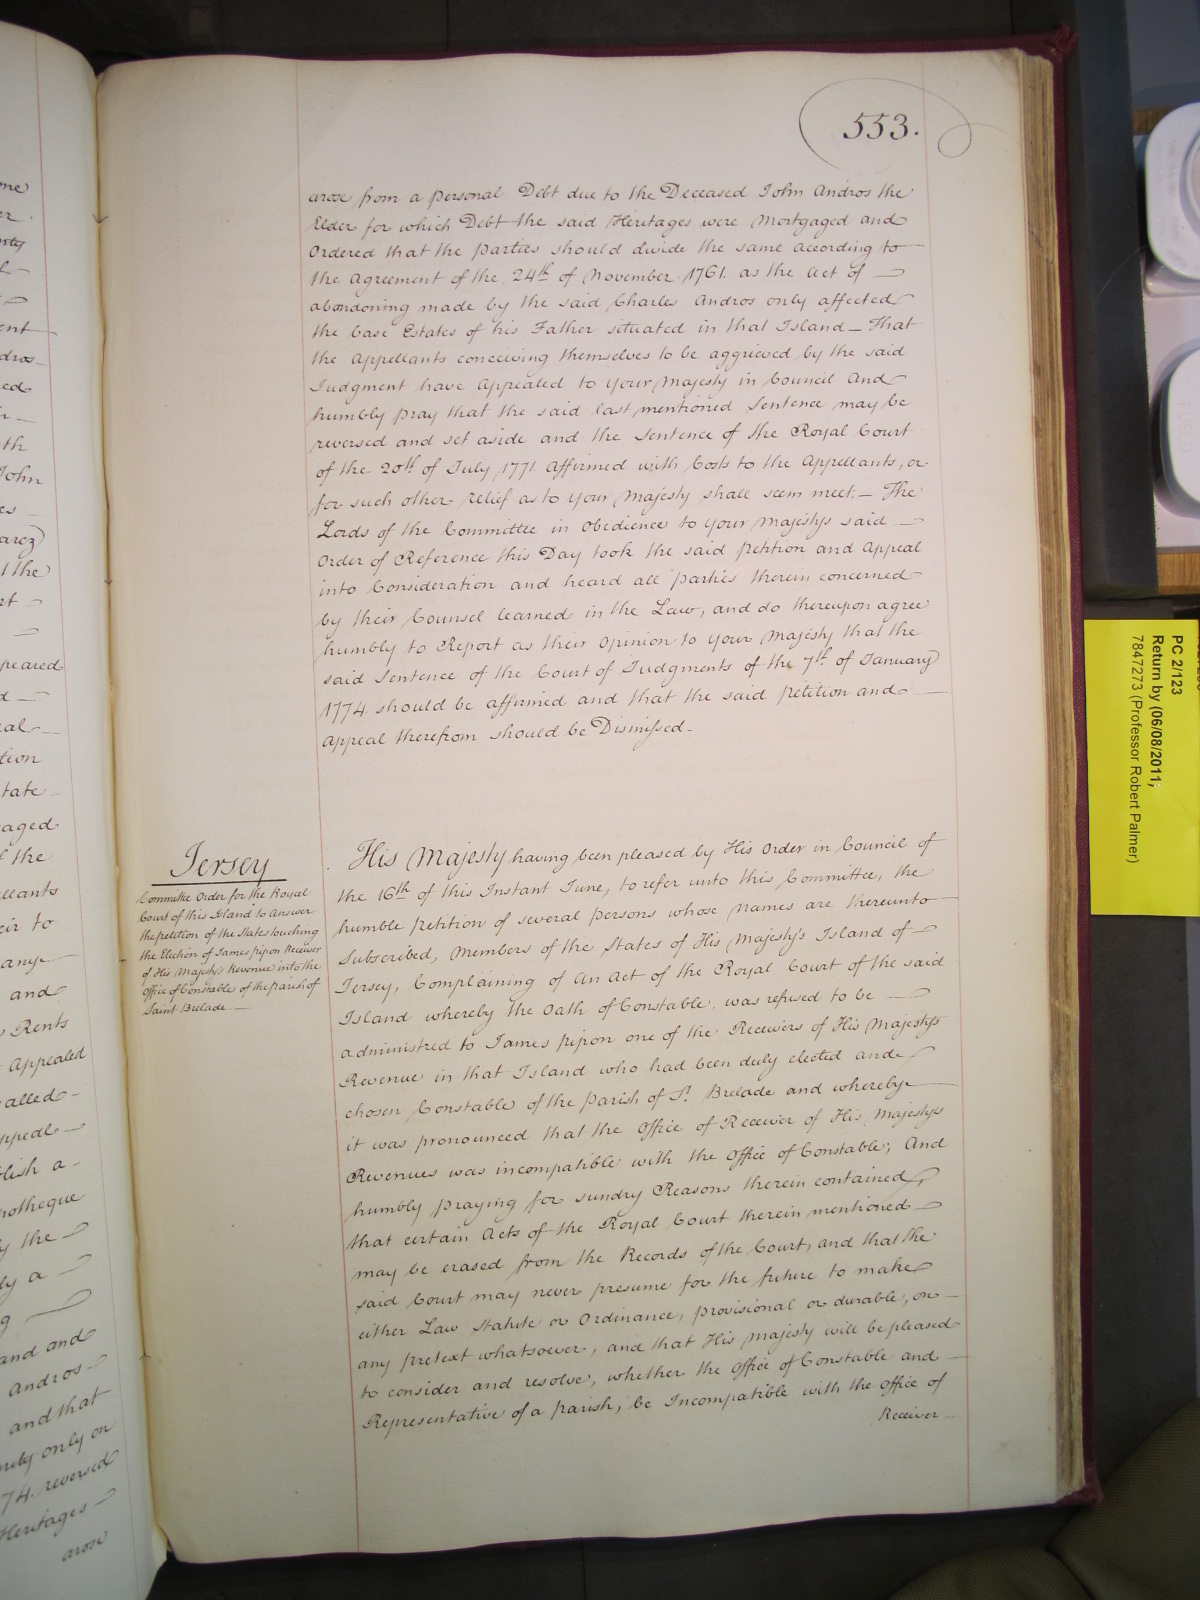 553.
arose from a personal Debt due to the Deceased John Andros the
Elder for which Debt the said Heritages were Mortgaged and
Ordered that the parties should divide the same according to
the Agreement of the 24th of November 1761. as the Act of
abandoning made by the said Charles Andros only affected
the Case Estates of his Father situated in that Island _ That
the Appellants conceiving themselves to be aggrieved by the said
Judgment have Appealed to Your Majesty in Council And
humbly pray that the said last mentioned Sentence may be
reversed and set aside and the Sentence of the Royal Court
of the 20th of July 1771 Affirmed with Costs to the Appellants, or
for such other relief as to Your Majesty shall seem meet._ The
Lords of the Committee in Obedience to Your Majestys said
Order of Reference this Day took the said Petition and Appeal
into Consideration and heard all parties therein concerned
by their Counsel learned in the Law, and do thereupon agree
humbly to Report as their Opinion to Your Majesty that the
said Sentence of the Court of Judgments of the 7th of January
1774. should be affirmed and that the said petition and
Appeal therefrom should be Dismissed._
Jersey
Committee Order for the Royal
Court of this Island to Answer
the petition of the States touching
the Election of James pipon Receiver
of His Majesty's Revenue into the
Office of Constable of the parish of
Saint Brelade.
His Majesty having been pleased by His Order in Council of
the 16th of this Instant June, to refer unto this Committee, the
humble Petition of several persons whose Names are thereunto
Subscribed, Members of the States of His Majesty's Island of
Jersey, Complaining of An Act of the Royal Court of the said
Island whereby the Oath of Constable, was refused to be
administred to James pipon one of the Receivers of His Majestys
Revenue in that Island who had been duly elected and
chosen Constable of the Parish of St. Brelade and whereby
it was pronounced that the Office of Receiver of His Majestys
Revenues was incompatible with the Office of Constable; And
humbly praying for sundry Reasons therein contained,
that certain Acts of the Royal Court therein mentioned
may be erased from the Records of the Court, and that the
said Court may never presume for the future to make
either Law Statute or Ordinance, provisional or durable, on
any pretext whatsoever, and that His Majesty will be pleased
to consider and resolve, whether the Office of Constable and
Representative of a Parish, be Incompatible with the Office of
Receiver
PC 2/123
Return by (06/08/2011;
7847273 (Professor Robert Palmer)